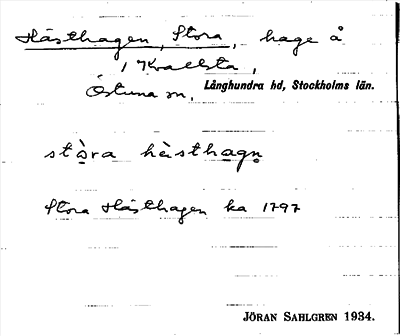 Hästhagen, Stora, hage å
1 Kvallsta,
Östuna sn, Långhundra hd, Stockholms län.
stòra hèsthagn
Stora Hästhagen ka 1797
JÖRAN SAHLGREN 1934.